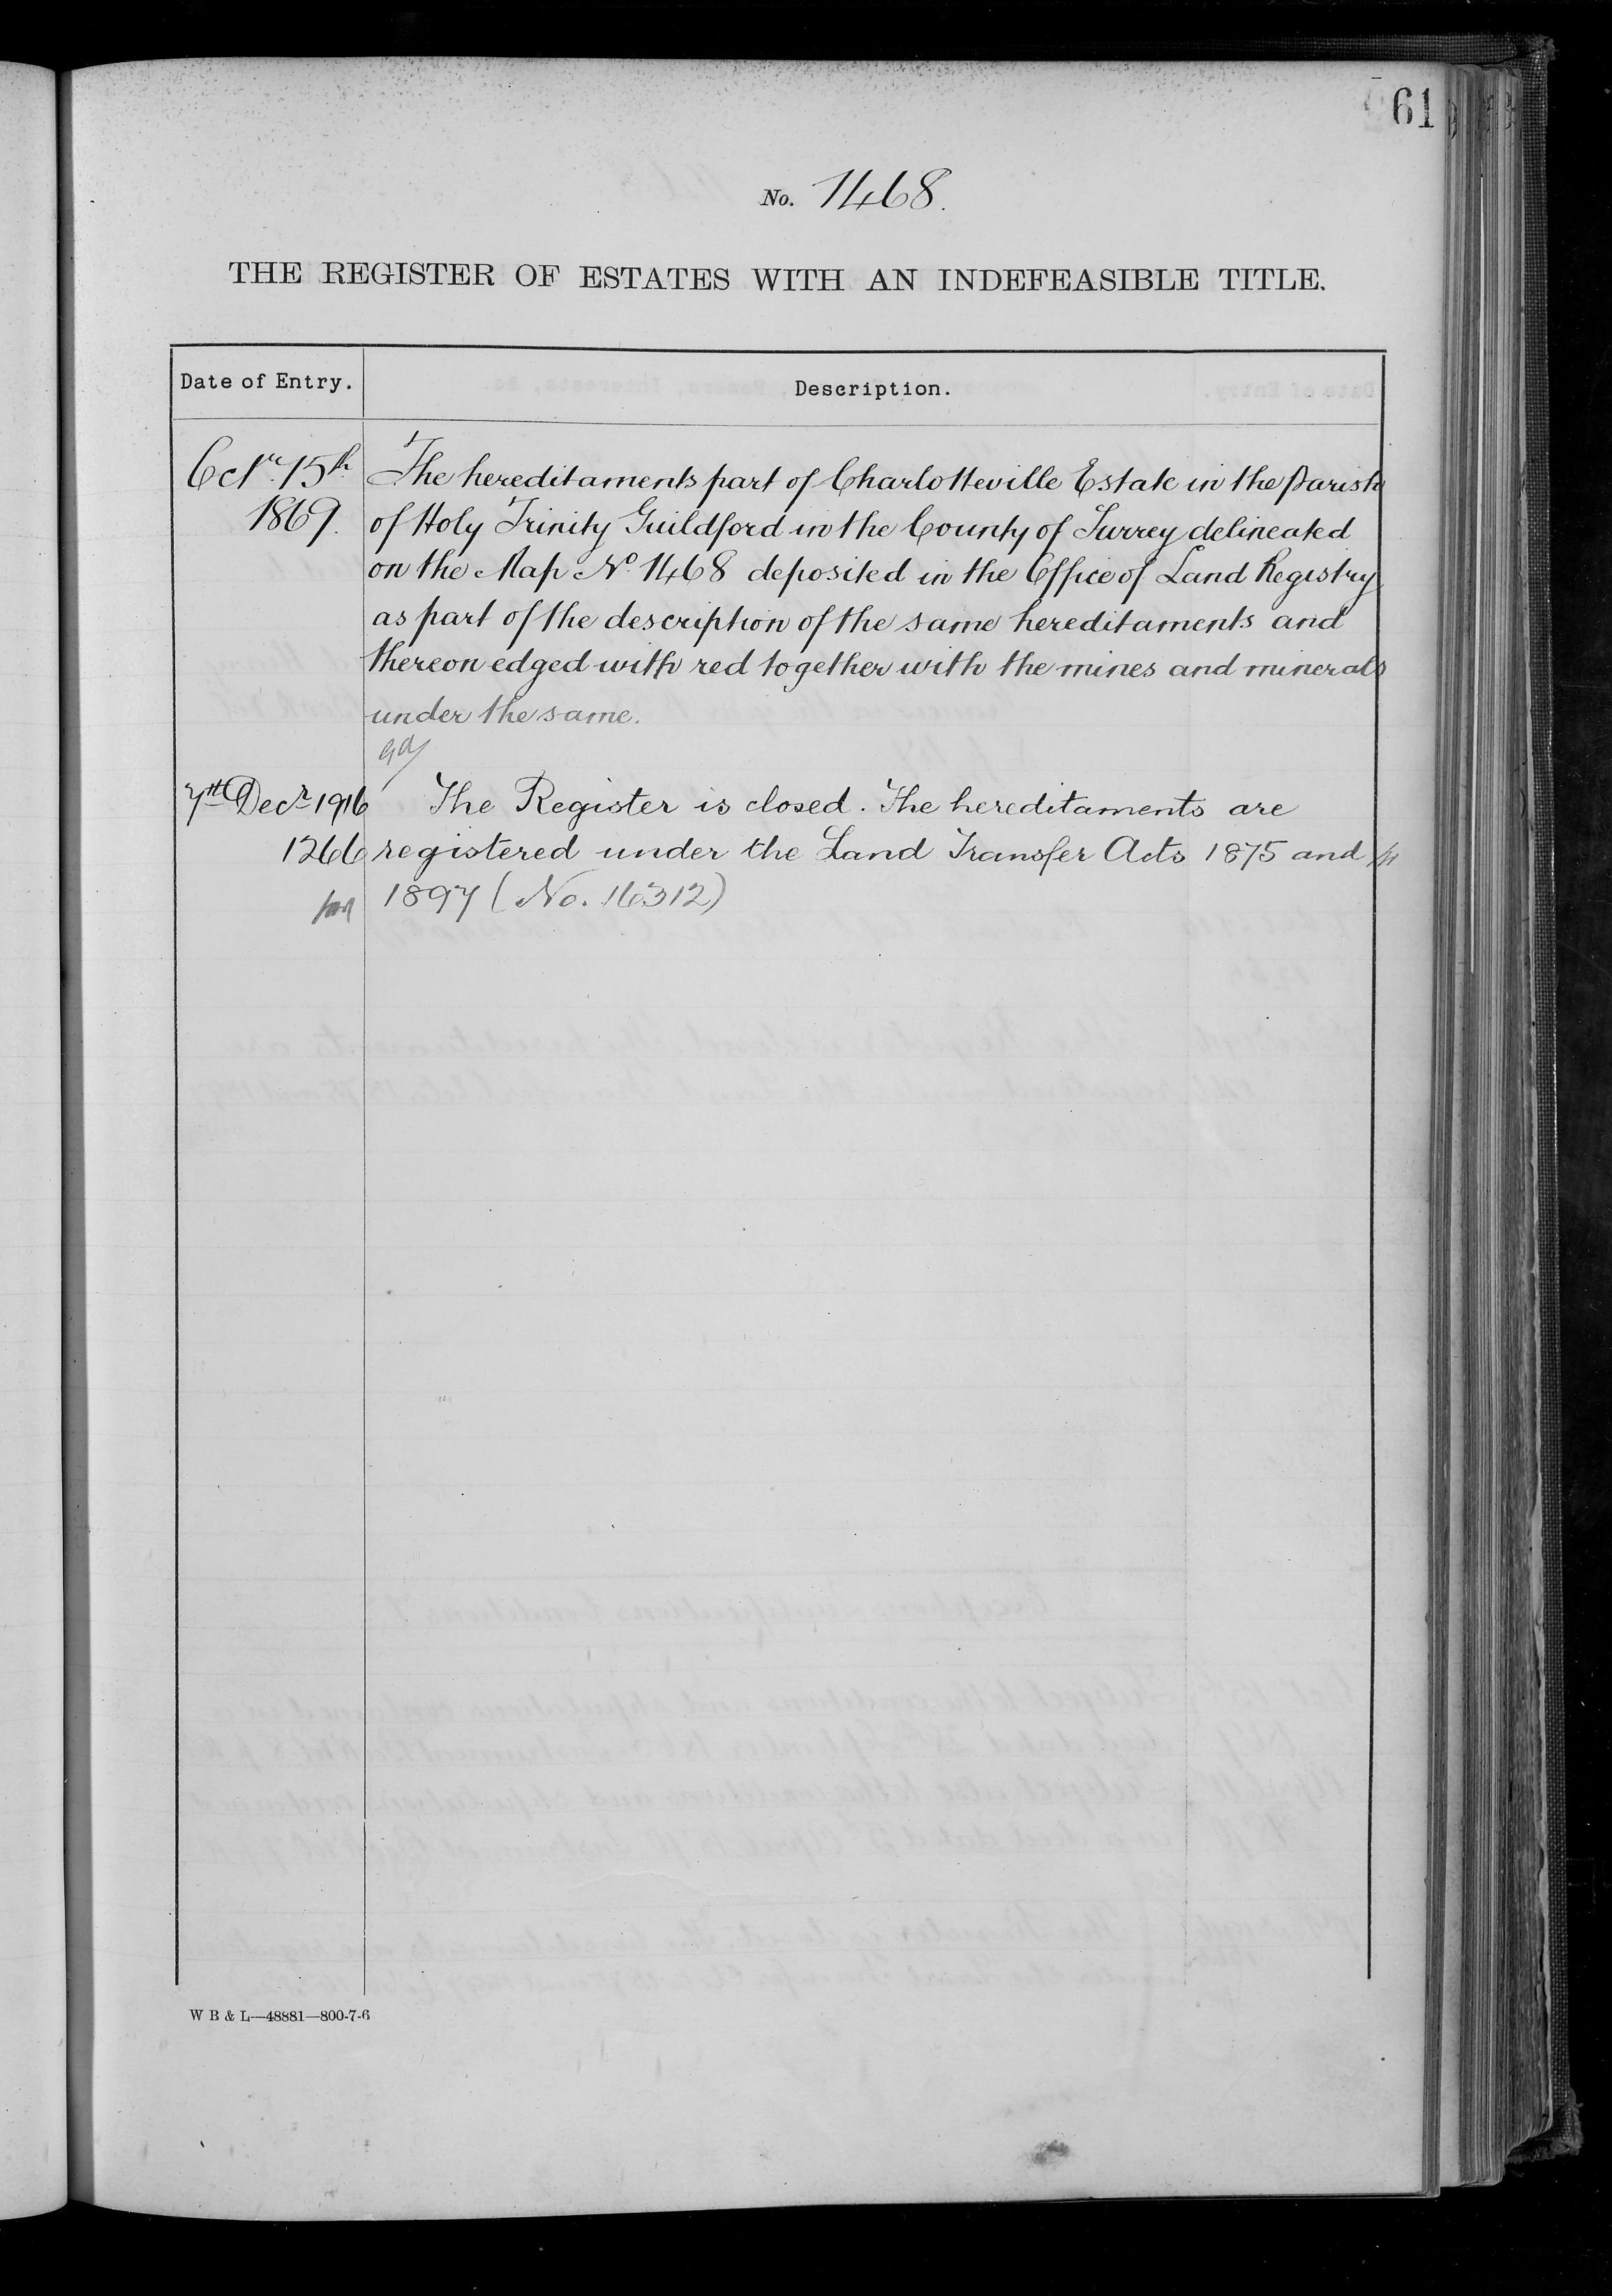 61
No. 1468.
THE REGISTER OF ESTATES WITH AN INDEFEASIBLE TITLE.
Date of Entry.
Description.
Octr. 15th
1869.
The hereditaments part of Charlotteville Estate in the Parish
of Holy Trinity Guildford in the County of Surrey delineated
on the Map No. 1468 deposited in the Office of Land Registry
as part of the description of the same hereditaments and
thereon edged with red together with the mines and minerals
under the same.
7th Decr 1916
1266
The Register is closed. The hereditaments are
registered under the Land Transfer Acts 1875 and
1897 (No. 16312)
W B & L—48881—800-7-6